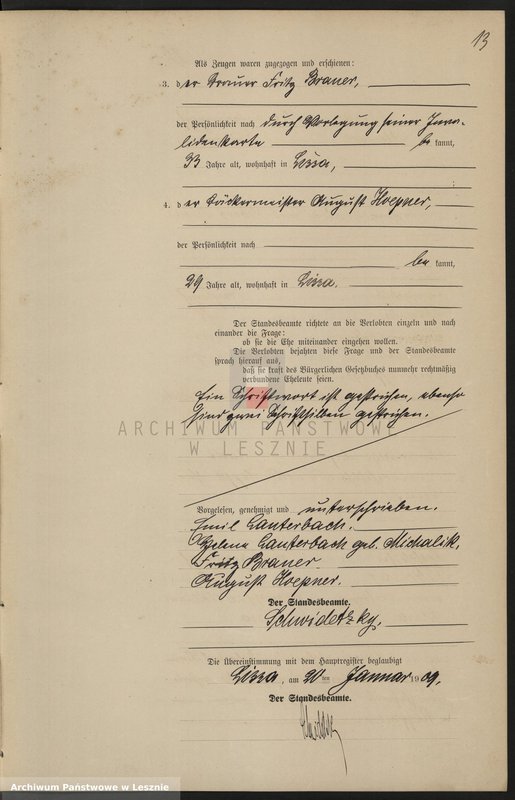 13
Als Zeugen waren zugezogen und erschienen:
3. der Brauer Fritz Brauer,
der Persönlichkeit nach durch Vorlegung seiner Inva-
lidenkarte bekannt,
33 Jahre alt, wohnhaft in Lissa,
4. der Bäckermeister August Hoepner,
der Persönlichkeit nach
bekannt,
29 Jahre alt, wohnhaft in Lissa.
Der Standesbeamte richtete an die Verlobten einzeln und nach
einander die Frage:
ob sie die Ehe miteinander eingehen wollen.
Die Verlobten bejahten diese Frage und der Standesbeamte
sprach hierauf aus,
daß sie kraft des Bürgerlichen Gesetzbuches nunmehr rechtmäßig
verbundene Eheleute seien.
Ein Schriftwort ist gestrichen, ebenso
sind zwei Schriftsilben gestrichen.
ARCHIWUM PAŃSTWOWE
W LESZNIE
Vorgelesen, genehmigt und unterschrieben.
Emil Lauterbach.
Helene Lauterbach geb. Michalik.
Fritz Brauer.
August Hoepner.
Der Standesbeamte.
Schwidetzky,
Die Übereinstimmung mit dem Hauptregister beglaubigt
Lissa, am 20ten Januar 1909.
Der Standesbeamte.
Archiwum Państwowe w Lesznie